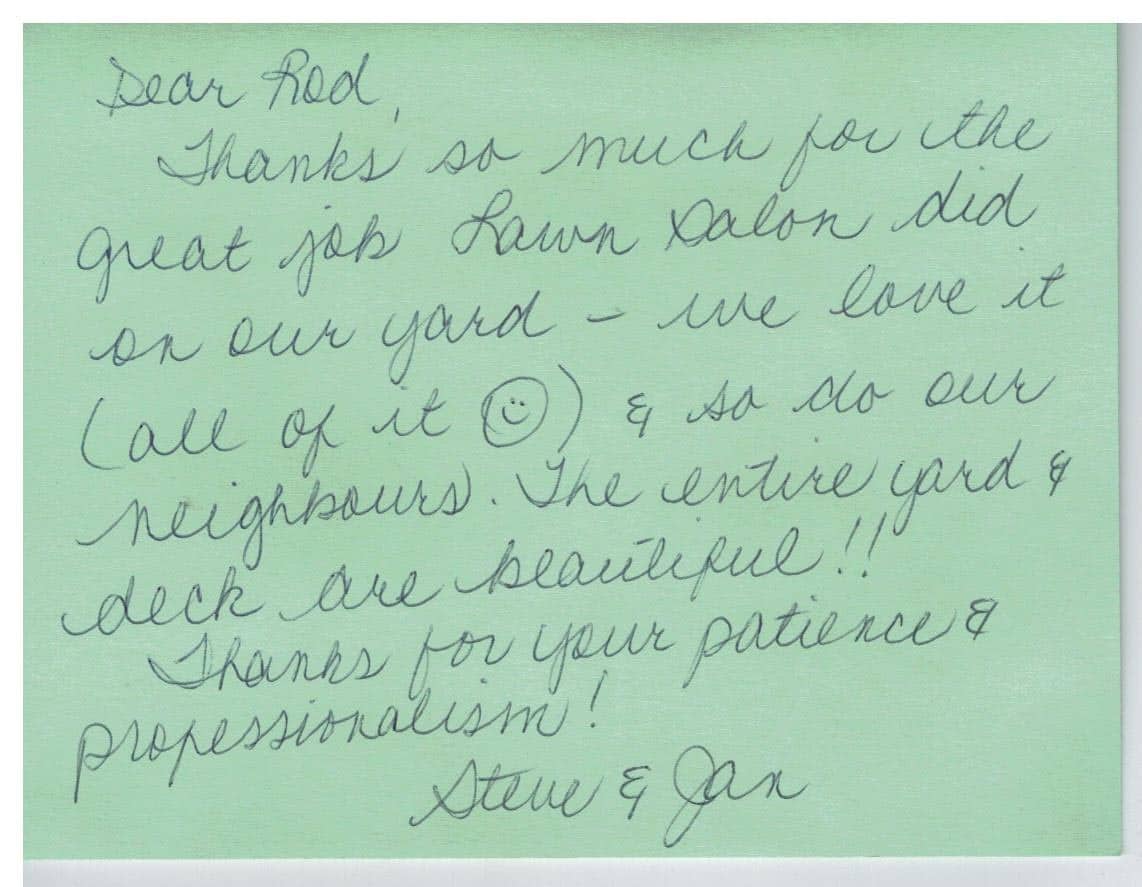 Dear Rod,
Thanks so much for the
great job Lawn Salon did
on our yard - we love it
(all of it ☺) & so do our
neighbours. The entire yard &
deck are beautiful!!
Thanks for your patience &
professionalism!
Steve & Jan